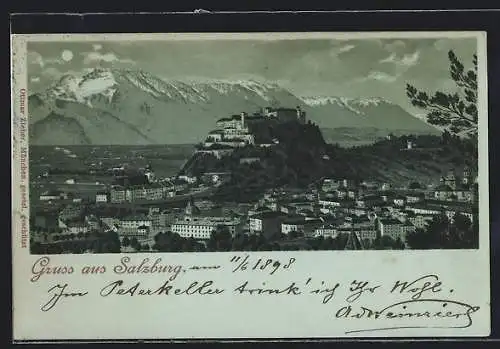 Ottmar Zieher, München, gesetzl. geschützt
Gruss aus Salzburg, am 11/6 1898
Im Peterkeller trink' ich Ihr Wohl.